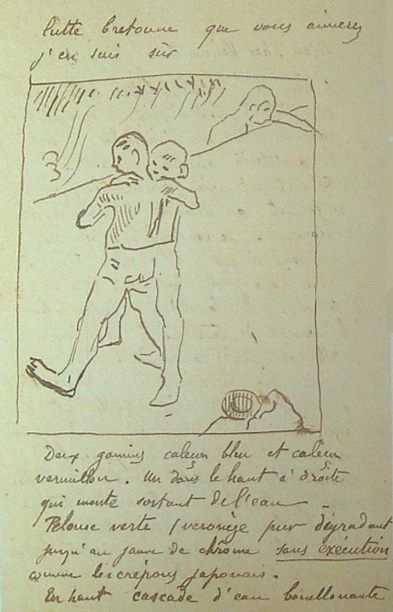 lutte bretonne que vous aimerez
j'en suis sûr
Deux gamins caleçon bleu et caleçon
vermillon. Un dans le haut à droite
qui monte sortant de l'eau —
Pelouse verte / veronèze pur dégradant
jusqu'au jaune de chrôme sans exécution
comme les crépons japonais.
En haut cascade d'eau bouillonante